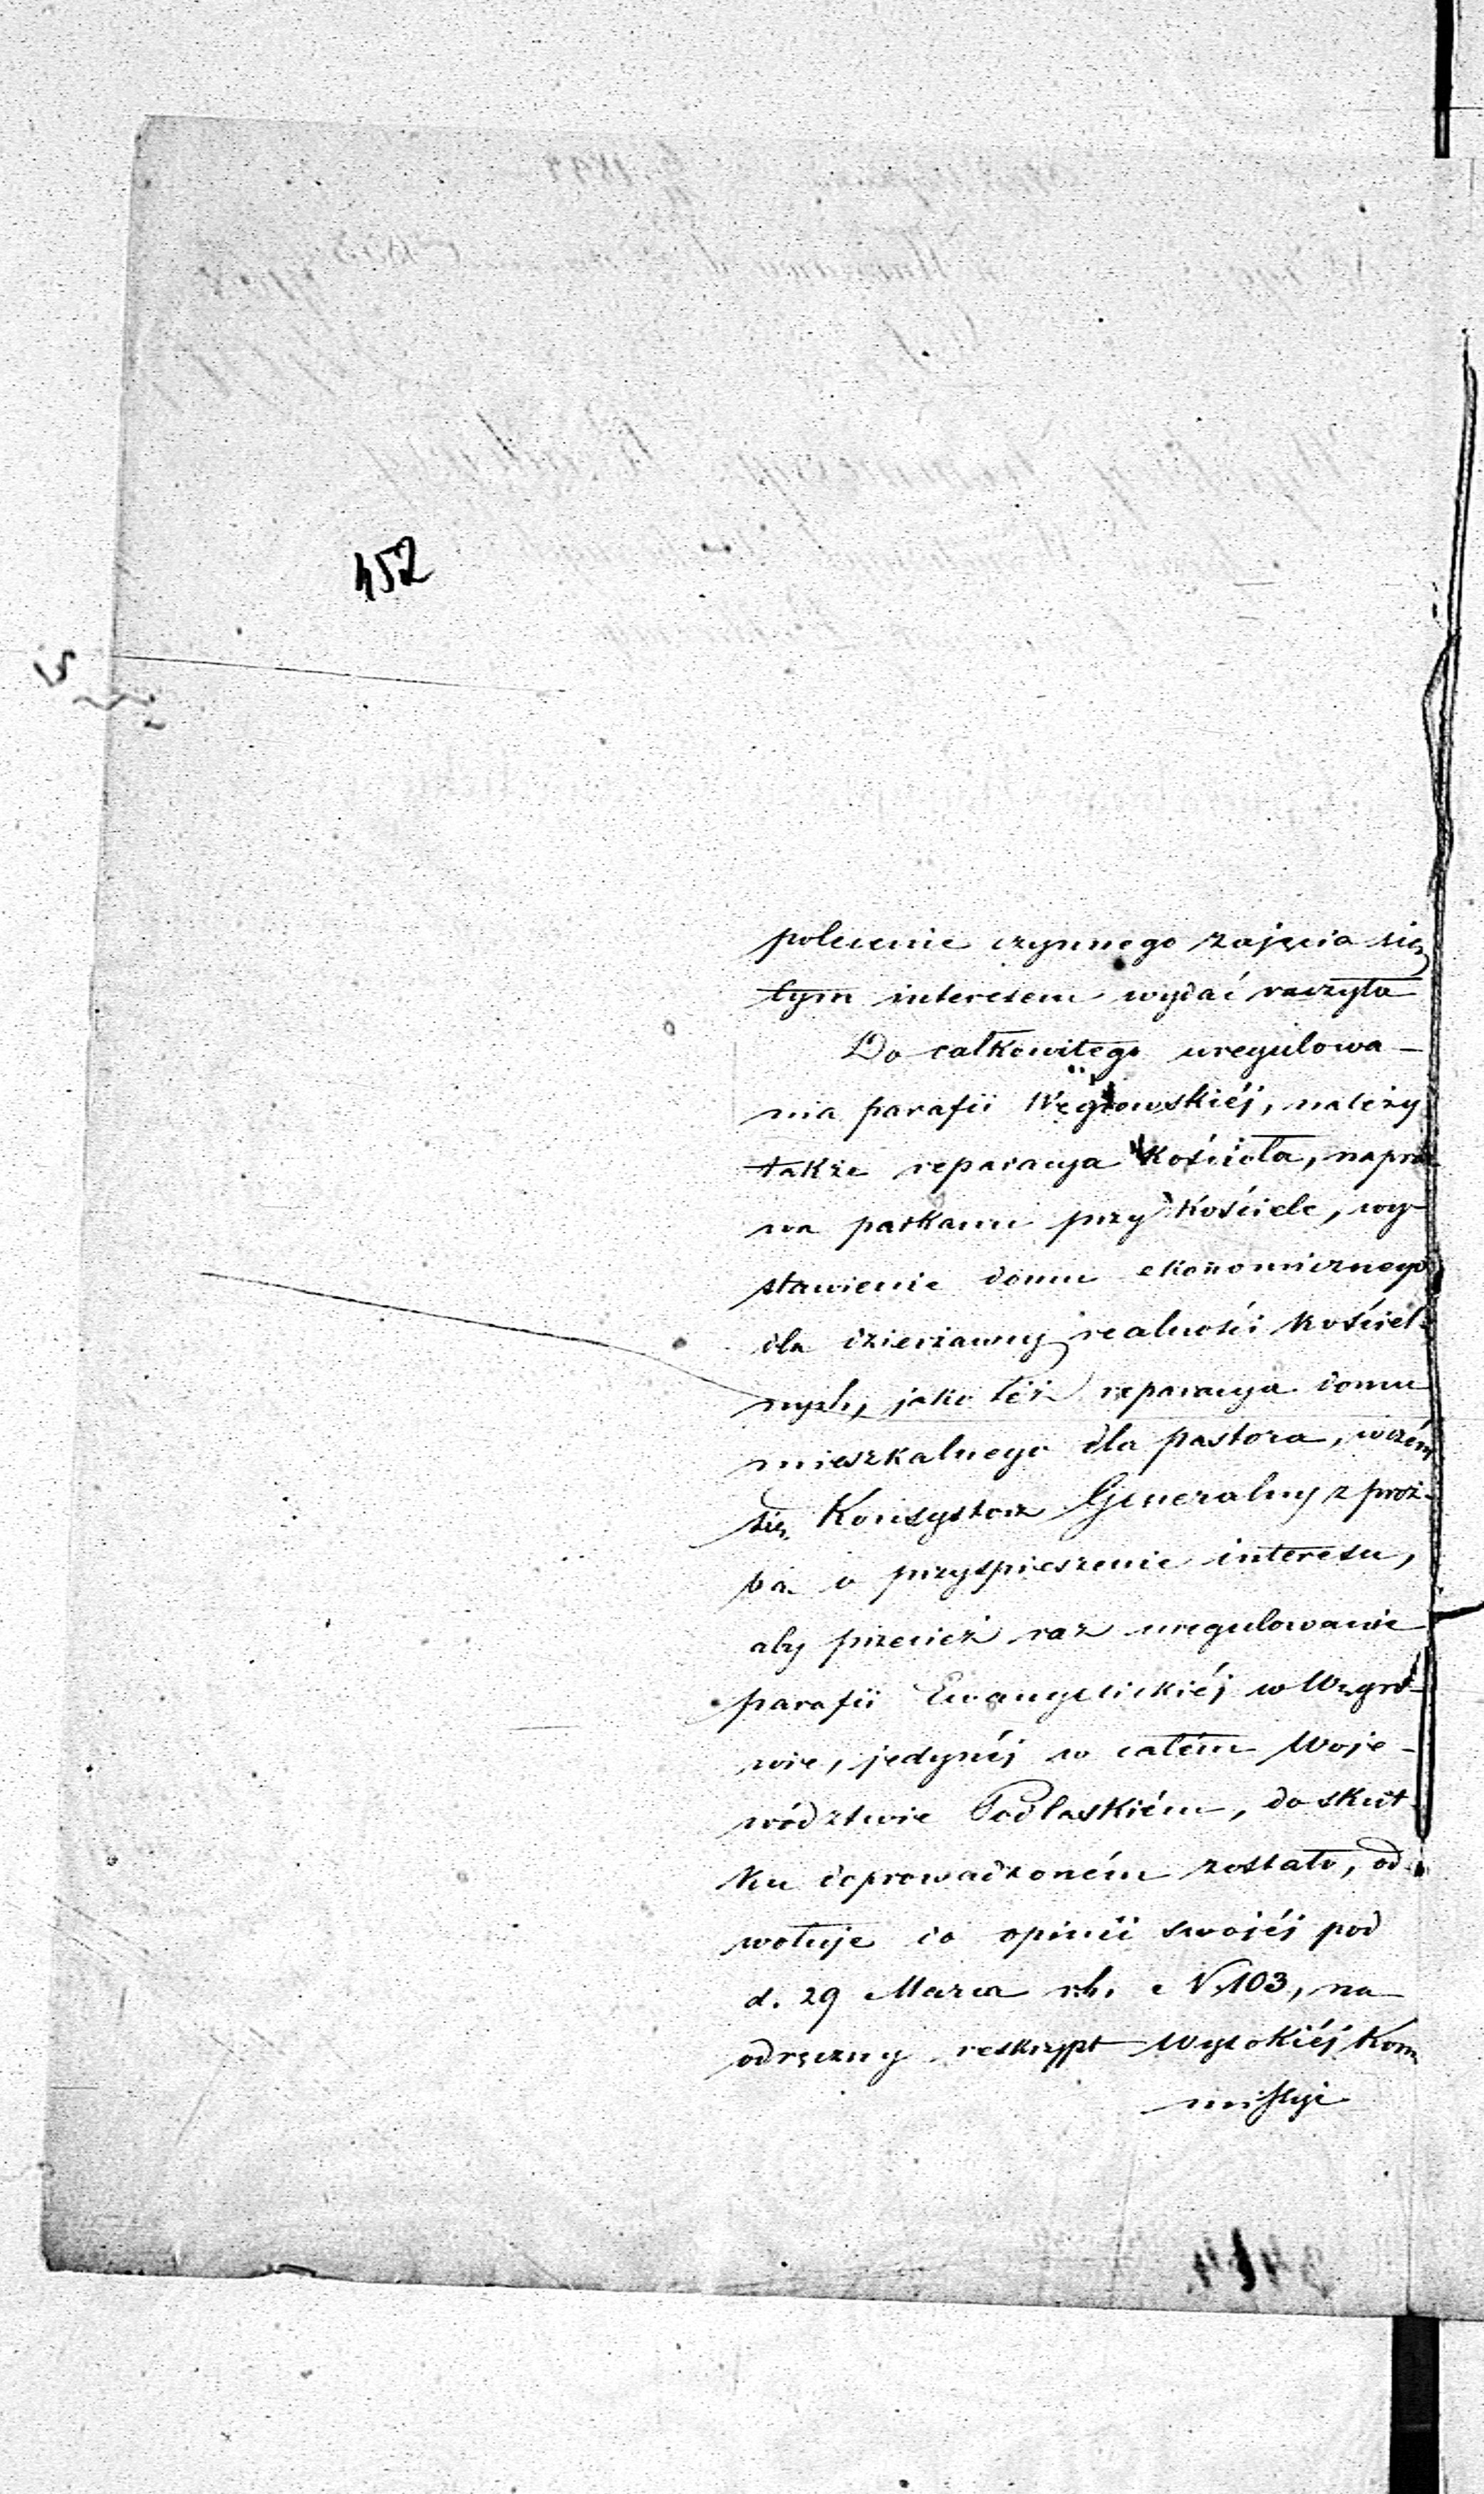 452
polecenie czynnego zajęcia się
tym interesem wydać raczyła
Do całkowitego uregulowa-
nia parafii Węgrowskiéj, należy
także reparacya Kościoła, napra-
wa parkanu przy Kościele, wy-
stawienie domu ekonomicznego
dla dzierżawcy realności Kościel-
nych, jako też reparacya domu
mieszkalnego dla pastora, w czém
się Konsystorz Generalny z proź-
bą o przyspieszenie interesu,
aby przecież raz uregulowanie
parafii Ewangelickiéj w Węgro-
wie, jedynéj w całém Woje-
wództwie Podlaskiém, do skut-
ku doprowadzoném zostało, od-
wołuje do opinii swojéj pod
d. 29 Marca rb. N. 103, na
odręczny reskrypt Wysokiéj Kom
missyi